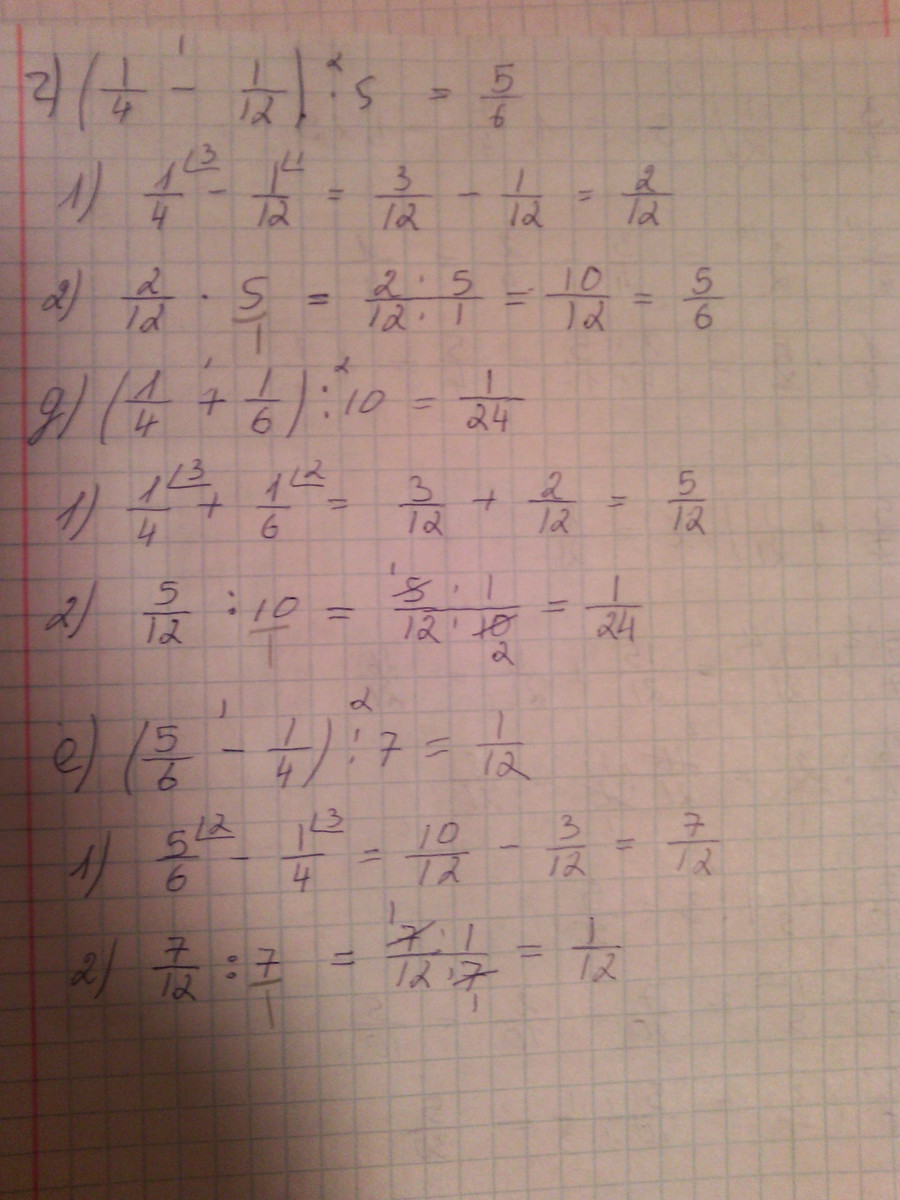 г) (1/4 - 1/12) · 5 = 5/6
1) 1/4 ⌊3 - 1/12 ⌊1 = 3/12 - 1/12 = 2/12
2) 2/12 · 5/1 = 2 · 5/12 · 1 = 10/12 = 5/6
д) (1/4 + 1/6) : 10 = 1/24
1) 1/4 ⌊3 + 1/6 ⌊2 = 3/12 + 2/12 = 5/12
2) 5/12 : 10/1 = 5 · 1/12 · 10 = 1/24
е) (5/6 - 1/4) : 7 = 1/12
1) 5/6 ⌊2 - 1/4 ⌊3 = 10/12 - 3/12 = 7/12
2) 7/12 : 7/1 = 7 · 1/12 · 7 = 1/12